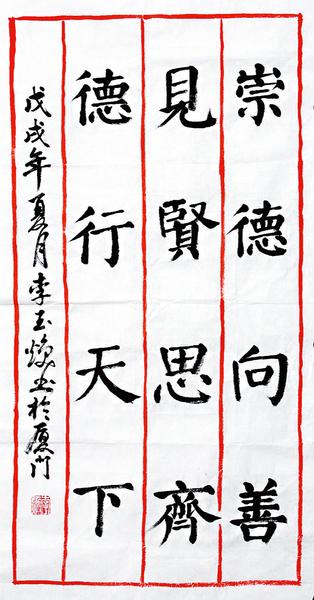 崇德向善
見賢思齊
德行天下
戊戌年夏月李玉焕书於厦门